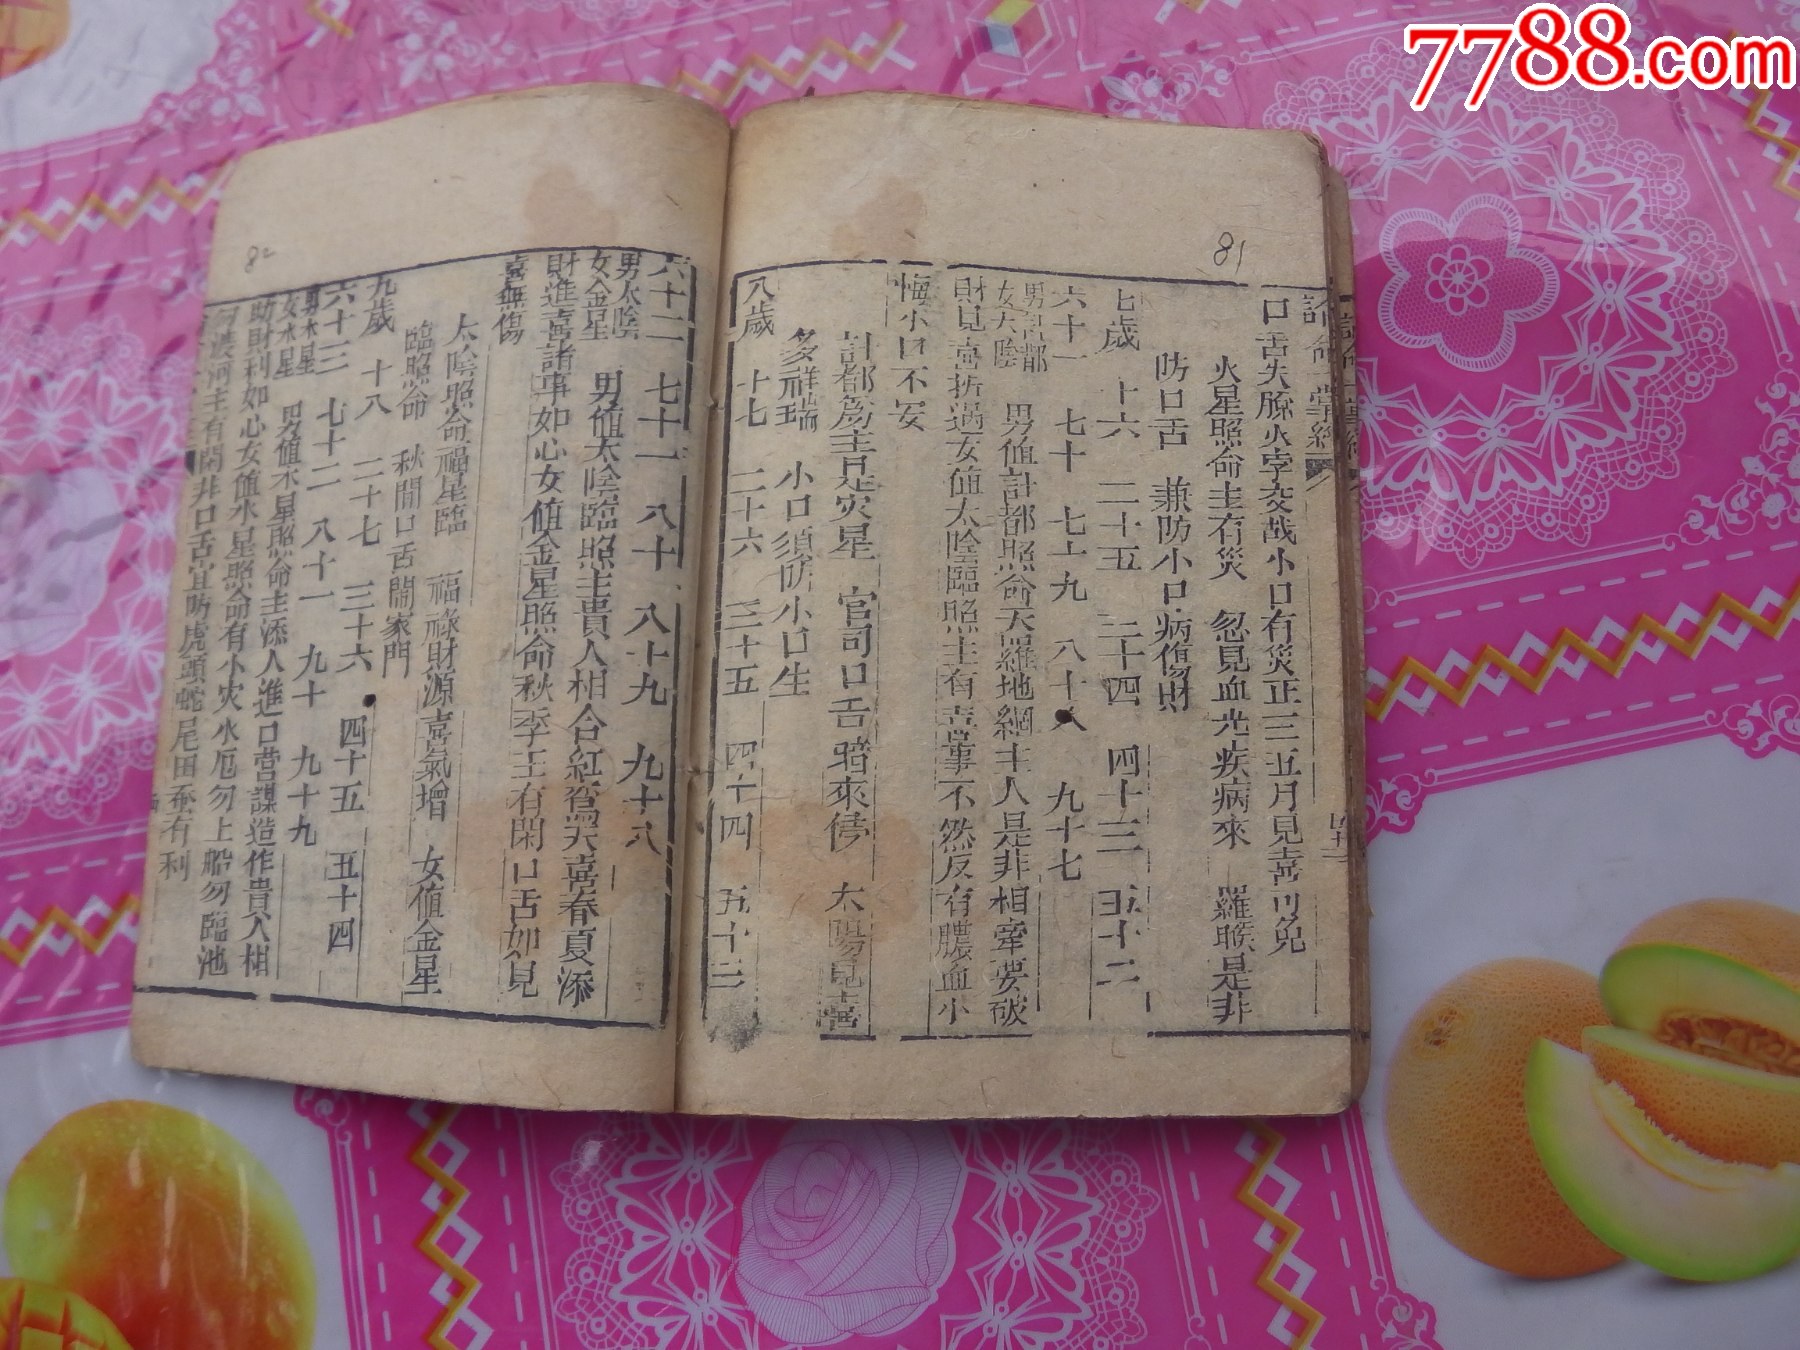 7788.com
81
口舌失脫火孛交战小口有災正三五月見喜可免
火星照命主有災 忽見血光疾病來 羅睺是非
防口舌 兼防小口病傷財
七歲 十六 二十五 三十四 四十三 五十二
六十一 七十 七十九 八十八 九十七
男計都
女太陰 男值計都照命天羅地網主人是非相牽要破
財見喜折過女值太陰臨照主有喜事不然反有膿血小
悔小口不安
計都為主是灾星 官司口舌暗來侵 太陽見喜
多祥瑞 小口須防小口生
八歲 十七 二十六 三十五 四十四 五十三
82
六十二 七十一 八十 八十九 九十八
男太陰
女金星 男值太陰臨照主貴人相合紅鸞天喜春夏添
財進喜諸事如心女值金星照命秋季主有閑口舌如見
喜無傷
太陰照命福星臨 福祿財源喜氣增 女值金星
臨照命 秋間口舌閙家門
九歲 十八 二十七 三十六 四十五 五十四
六十三 七十二 八十一 九十 九十九
男木星
女水星 男值木星照命主添人進口营謀造作貴人相
助財利如心女值水星照命有小灾水厄勿上船勿臨池
河主有閑非口舌宜防虎頭蛇尾田蚕有利